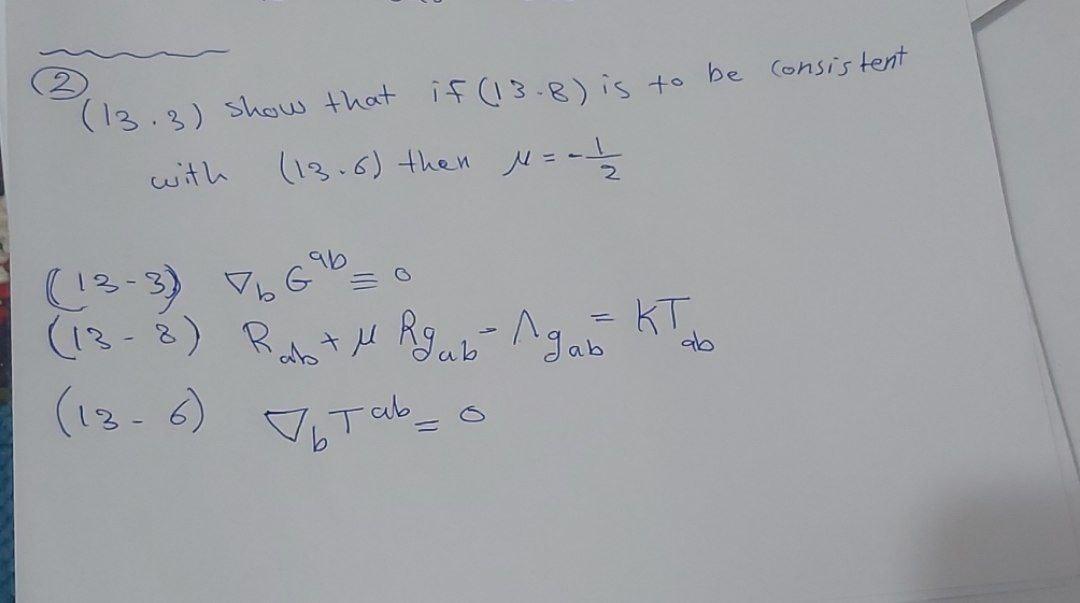 ②
(13.3) show that if (13.8) is to be consistent
with (13.6) then μ = -1/2
(13-3) ∇_b G^{ab} ≡ 0
(13-8) R_{ab} + μ R g_{ab} - Λ g_{ab} = KT_{ab}
(13-6) ∇_b T^{ab} = 0